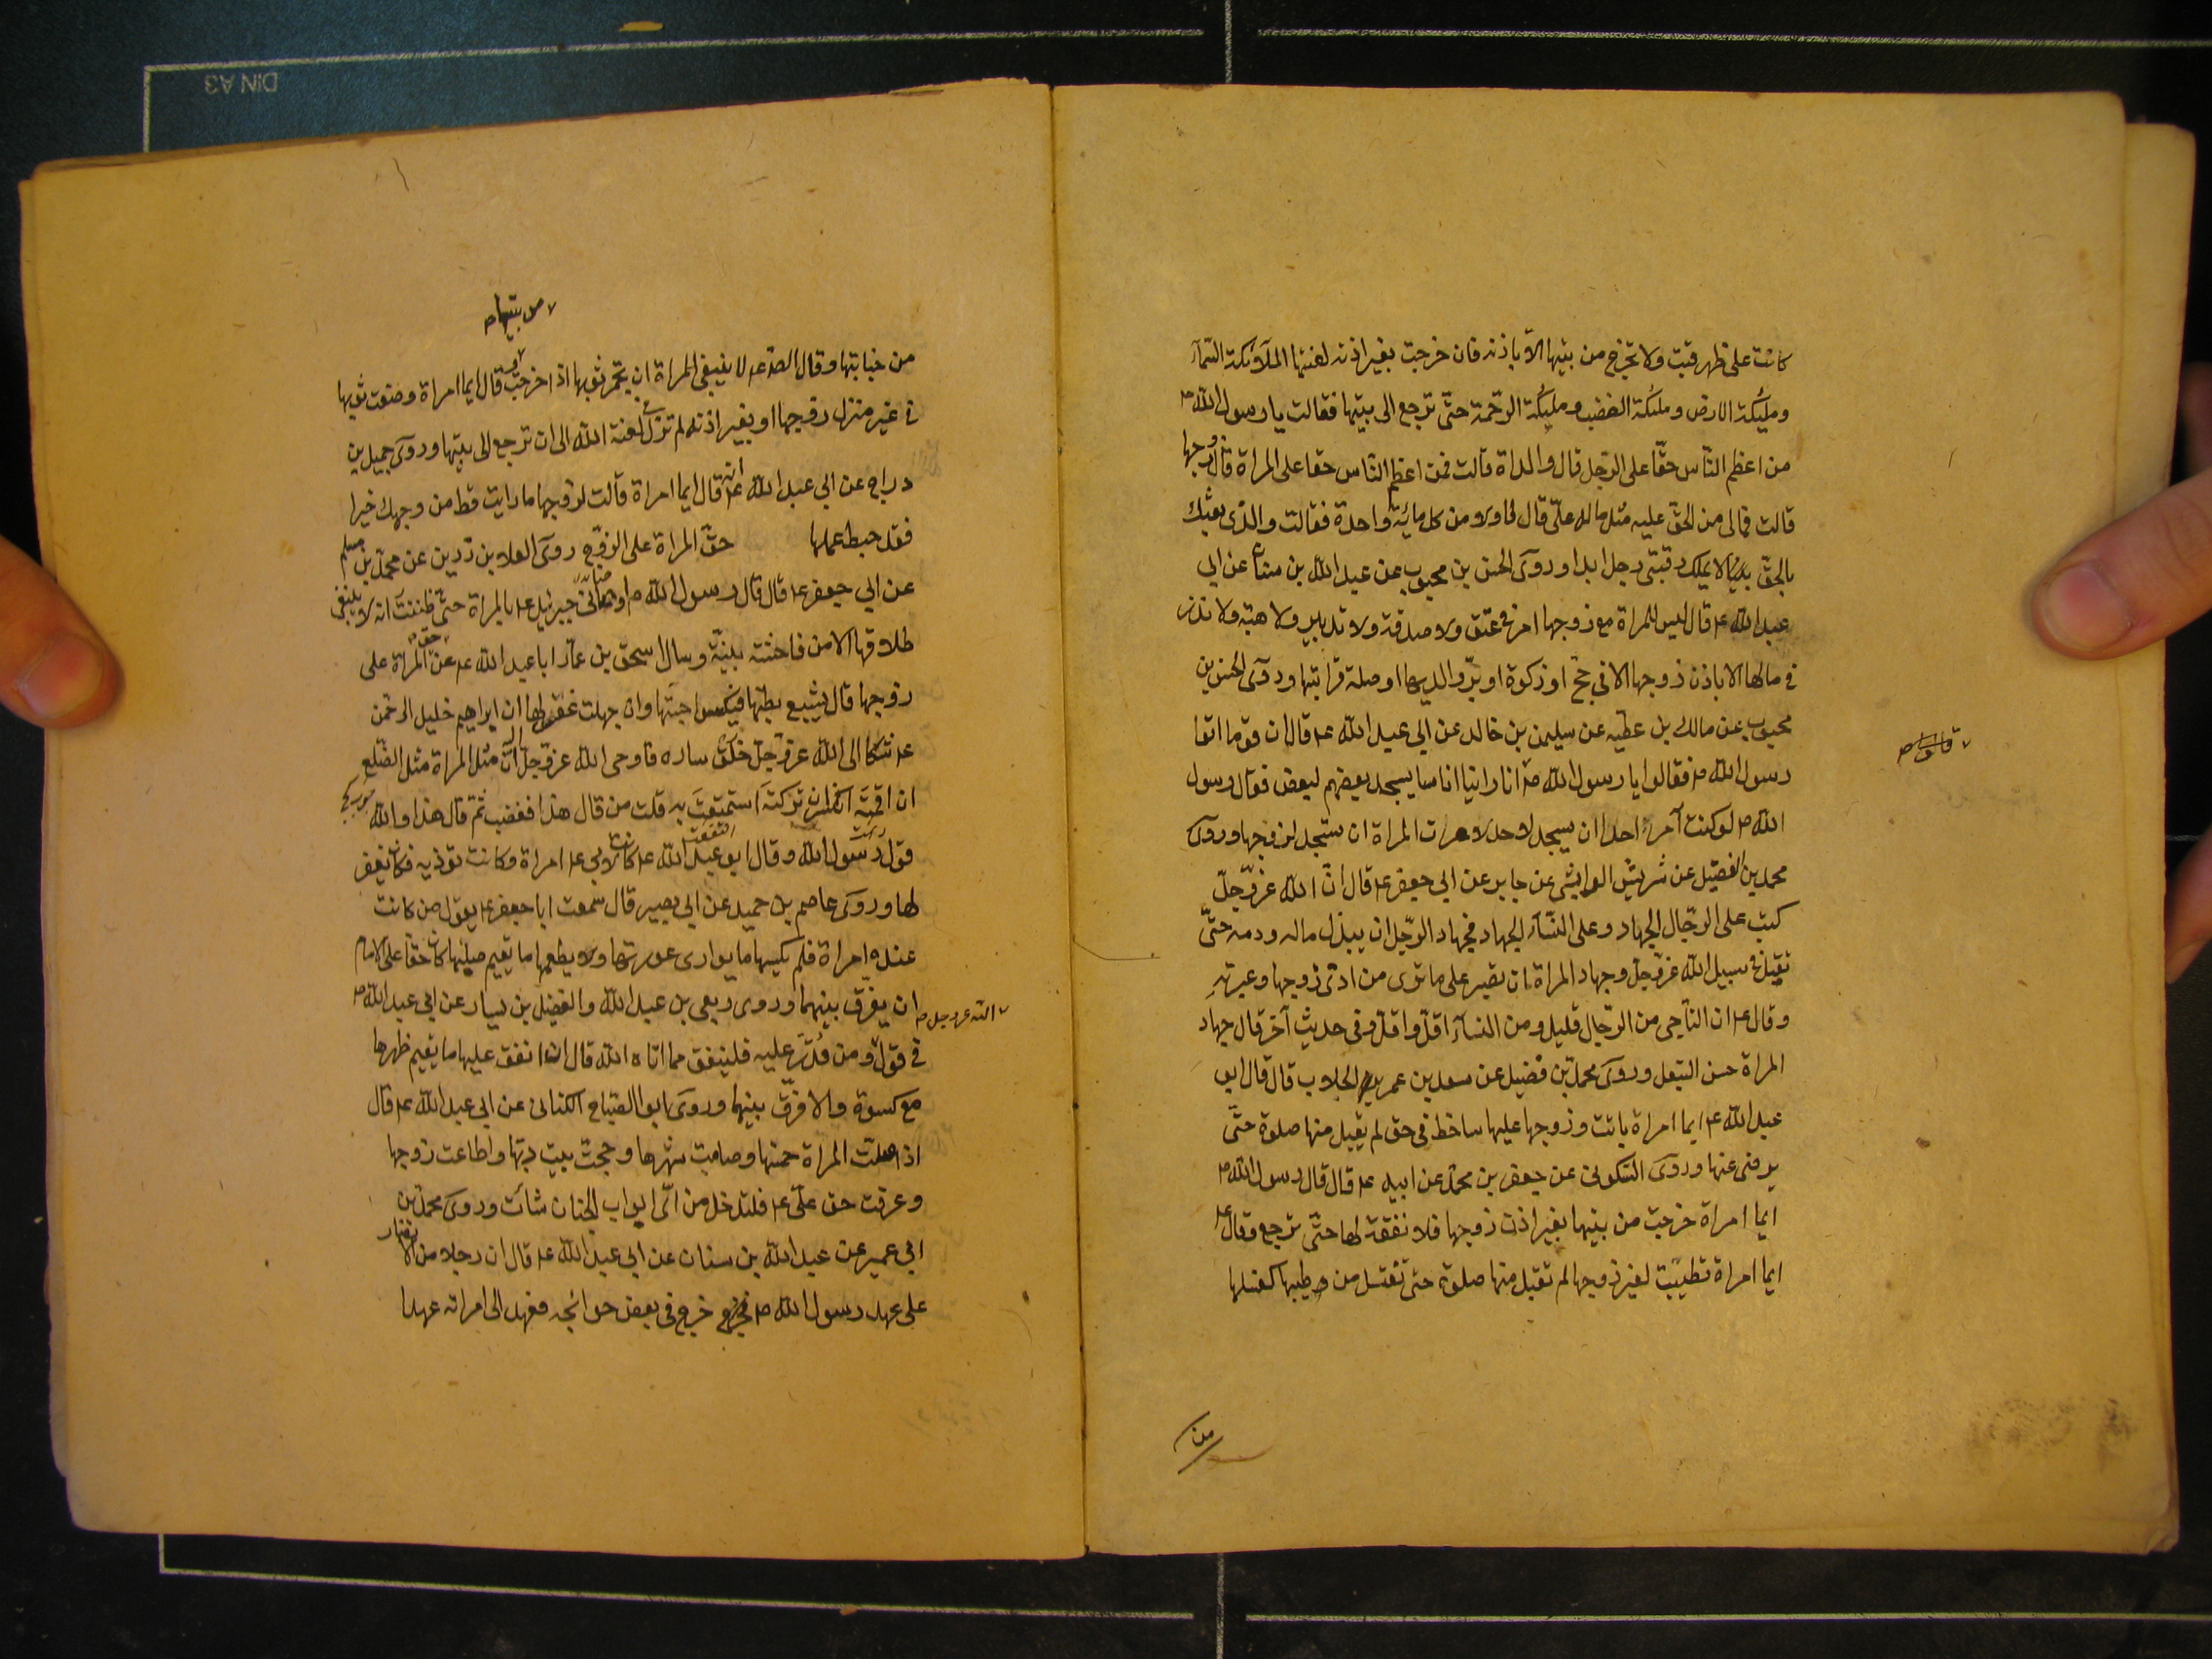 كانت على ظهر قتب ولا تخرج من بيتها الا باذنه فان خرجت بغير اذنه لعنتها الملائكة السمآء
ومليكة الارض ومليكة الغضب ومليكة الرحمة حتى ترجع الى بيتها فقالت يا رسول الله ص
من اعظم الناس حقا على الرجل قال والداه قالت فمن اعظم الناس حقا على المراة قال زوجها
قالت فمالى من الحق عليه مثل ماله على قال لا ولا من كل مائة واحدة فقالت والذى بعثك
بالحق لا يملك رقبتى رجل ابدا وروى الحسن بن محبوب عن عبد الله بن سنان عن ابى
عبد الله ع قال ليس للمراة مع زوجها امر فى عتق ولا صدقة ولا تدبير ولا هبة ولا نذر
فى مالها الا باذن زوجها الا فى حج او زكوة او بر والديها او صلة قرابتها وروى الحسن بن
محبوب عن مالك بن عطيه عن سليمن بن خالد عن ابى عبد الله ع قال ان قوما اتوا
رسول الله ص فقالوا يا رسول الله ص انا راينا اناسا يسجد بعضهم لبعض فقال رسول
الله ص لو كنت آمر احدا ان يسجد لاحد لامرت المراة ان تسجد لزوجها وروى
محمد بن الفضيل عن شريس الوابشى عن جابر عن ابى جعفر ع قال ان الله عز وجل
كتب على الرجال الجهاد وعلى النسآء الجهاد فجهاد الرجل ان يبذل ماله ودمه حتى
يقتل فى سبيل الله عز وجل وجهاد المراة ان تصبر على ما ترى من اذى زوجها وغيرته
وقال ع ان الناجى من الرجال قليل ومن النسآء اقل واقل وفى حديث آخر قال جهاد
المراة حسن التبعل وروى محمد بن فضيل عن سعد بن عمر الجلاب قال قال ابو
عبد الله ع ايما امراة باتت وزوجها عليها ساخط فى حق لم يقبل منها صلوة حتى
يرضى عنها وروى السكونى عن جعفر بن محمد عن ابيه ع قال قال رسول الله ص
ايما امراة خرجت من بيتها بغير اذن زوجها فلا نفقة لها حتى ترجع وقال ع
ايما امراة تطيبت لغير زوجها لم تقبل منها صلوة حتى تغتسل من طيبها كغسلها
من
من بيتها ص
من خبابتها وقال الصادق ع لا ينبغى للمراة ان تجمر ثوبها اذا خرجت وقال ايما امراة وضعت ثوبها
فى غير منزل زوجها او بغير اذنه لم تزل فى لعنة الله الى ان ترجع الى بيتها وروى جميل بن
دراج عن ابى عبد الله ع انه قال ايما امراة قالت لزوجها ما رايت قط من وجهك خيرا
فقد حبط عملها حق المراة على الزوج روى العلا بن رزين عن محمد بن مسلم
عن ابى جعفر ع قال قال رسول الله ص اوصانى جبرئيل ع بالمراة حتى ظننت انه لا ينبغى
طلاقها الا من فاحشة بينة وسال اسحق بن عمار ابا عبد الله ع عن حق المراة على
زوجها قال يشبع بطنها ويكسو جثتها وان جهلت غفر لها ان ابراهيم خليل الرحمن
ع شكا الى الله عز وجل خلق ساره فاوحى الله عز وجل اليه ان مثل المراة مثل الضلع
ان اقمته انكسر وان تركته استمتعت به قلت من قال هذا فغضب ثم قال هذا والله
قول رسول الله وقال ابو عبد الله ع كانت لابى ع امراة وكانت توذيه فكان يغفر
لها وروى عاصم بن حميد عن ابى بصير قال سمعت ابا جعفر ع يقول من كانت
عنده امراة فلم يكسها ما يوارى عورتها ولا يطعمها ما يقيم صلبها كان حقا على الامام
ان يفرق بينهما وروى ربعى بن عبد الله والفضيل بن يسار عن ابى عبد الله ص
الله عز وجل ص
فى قوله ومن قدر عليه فلينفق مما اتاه الله قال ان انفق عليها ما يقيم ظهرها
مع كسوة والا فرق بينهما وروى ابو الصباح الكنانى عن ابى عبد الله ع قال
اذا صلت المراة خمسها وصامت شهرها وحجت بيت ربها واطاعت زوجها
وعرفت حق على ع فلتدخل من اى ابواب الجنان شائت وروى محمد بن
ابى عمير عن عبد الله بن سنان عن ابى عبد الله ع قال ان رجلا من الانصار
على عهد رسول الله ص خرج فى بعض حوائجه فعهد الى امراته عهدا